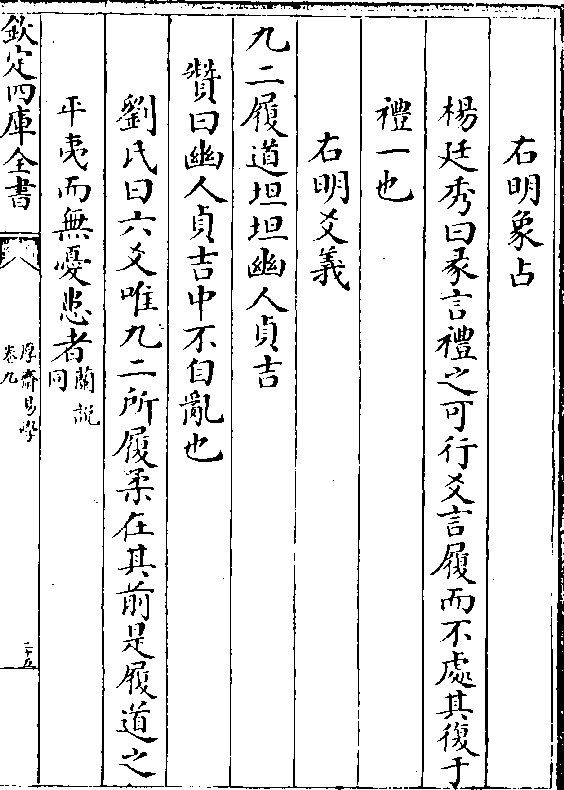 右明象占
楊廷秀曰彖言禮之可行爻言履而不處其復于
禮一也
右明爻義
九二履道坦坦幽人貞吉
贊曰幽人貞吉中不自亂也
劉氏曰六爻唯九二所履柔在其前是履道之
平夷而無憂患者蘭說同
欽定四庫全書
厚齋易學
卷九
二十五